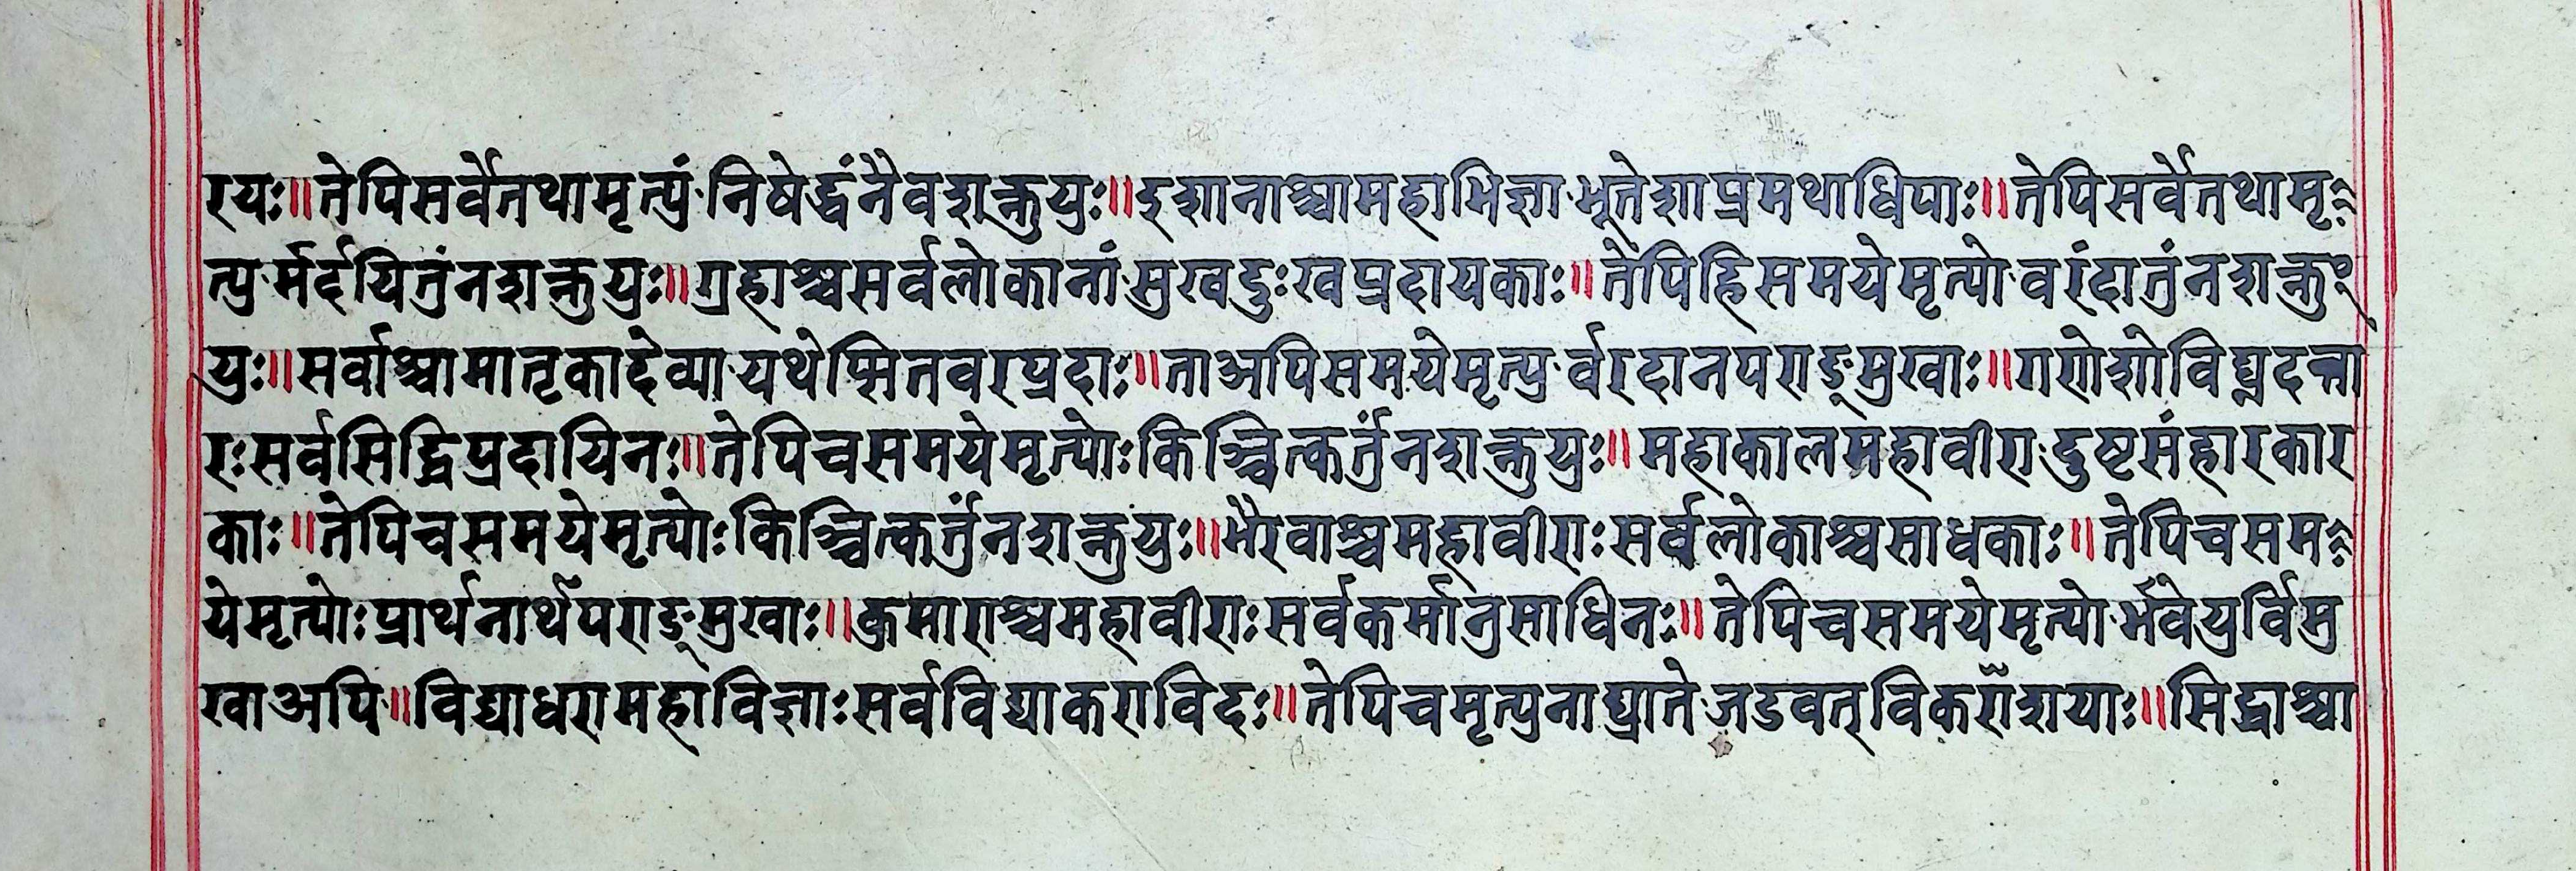 रयः॥तेपिसर्वेतथामृत्युं निषेद्धुंनैवशक्नुयुः॥इशानाश्चामहाभिज्ञा भूतेशाप्रमथाधिपाः॥तेपिसर्वेतथामृ
त्यु र्मर्दयितुंनशक्नुयुः॥ग्रहाश्चसर्वलोकानां सुखदुःखप्रदायकाः॥तेपिहिसमयेमृत्यो वरंदातुंनशक्नु
युः॥सर्वाश्चामातृकादेव्या यथेप्सितवरप्रदाः॥ताअपिसमयेमृत्यु र्वरदानपराङ्मुखाः॥गणेशोविघ्नदन्ता
रःसर्वसिद्धिप्रदायिनः॥तेपिचसमयेमृत्योःकिञ्चित्कर्तुंनशक्नुयुः॥महाकालमहावीरा दुष्टसंहारकार
काः॥तेपिचसमयेमृत्योःकिञ्चित्कर्तुंनशक्नुयुः॥भैरवाश्चमहावीराःसर्वलोकाश्चसाधकाः॥तेपिचसम
येमृत्योःप्रार्थनार्थंपराङ्मुखाः॥कुमाराश्चमहावीराःसर्वकर्मानुसाधिनः॥तेपिचसमयेमृत्यो र्भवेयुर्विमु
खाअपि॥विद्याधरामहाविज्ञाःसर्वविद्याकराविदः॥तेपिचमृत्युनाघ्राते जडवत्विकराँशयाः॥सिद्धाश्चा